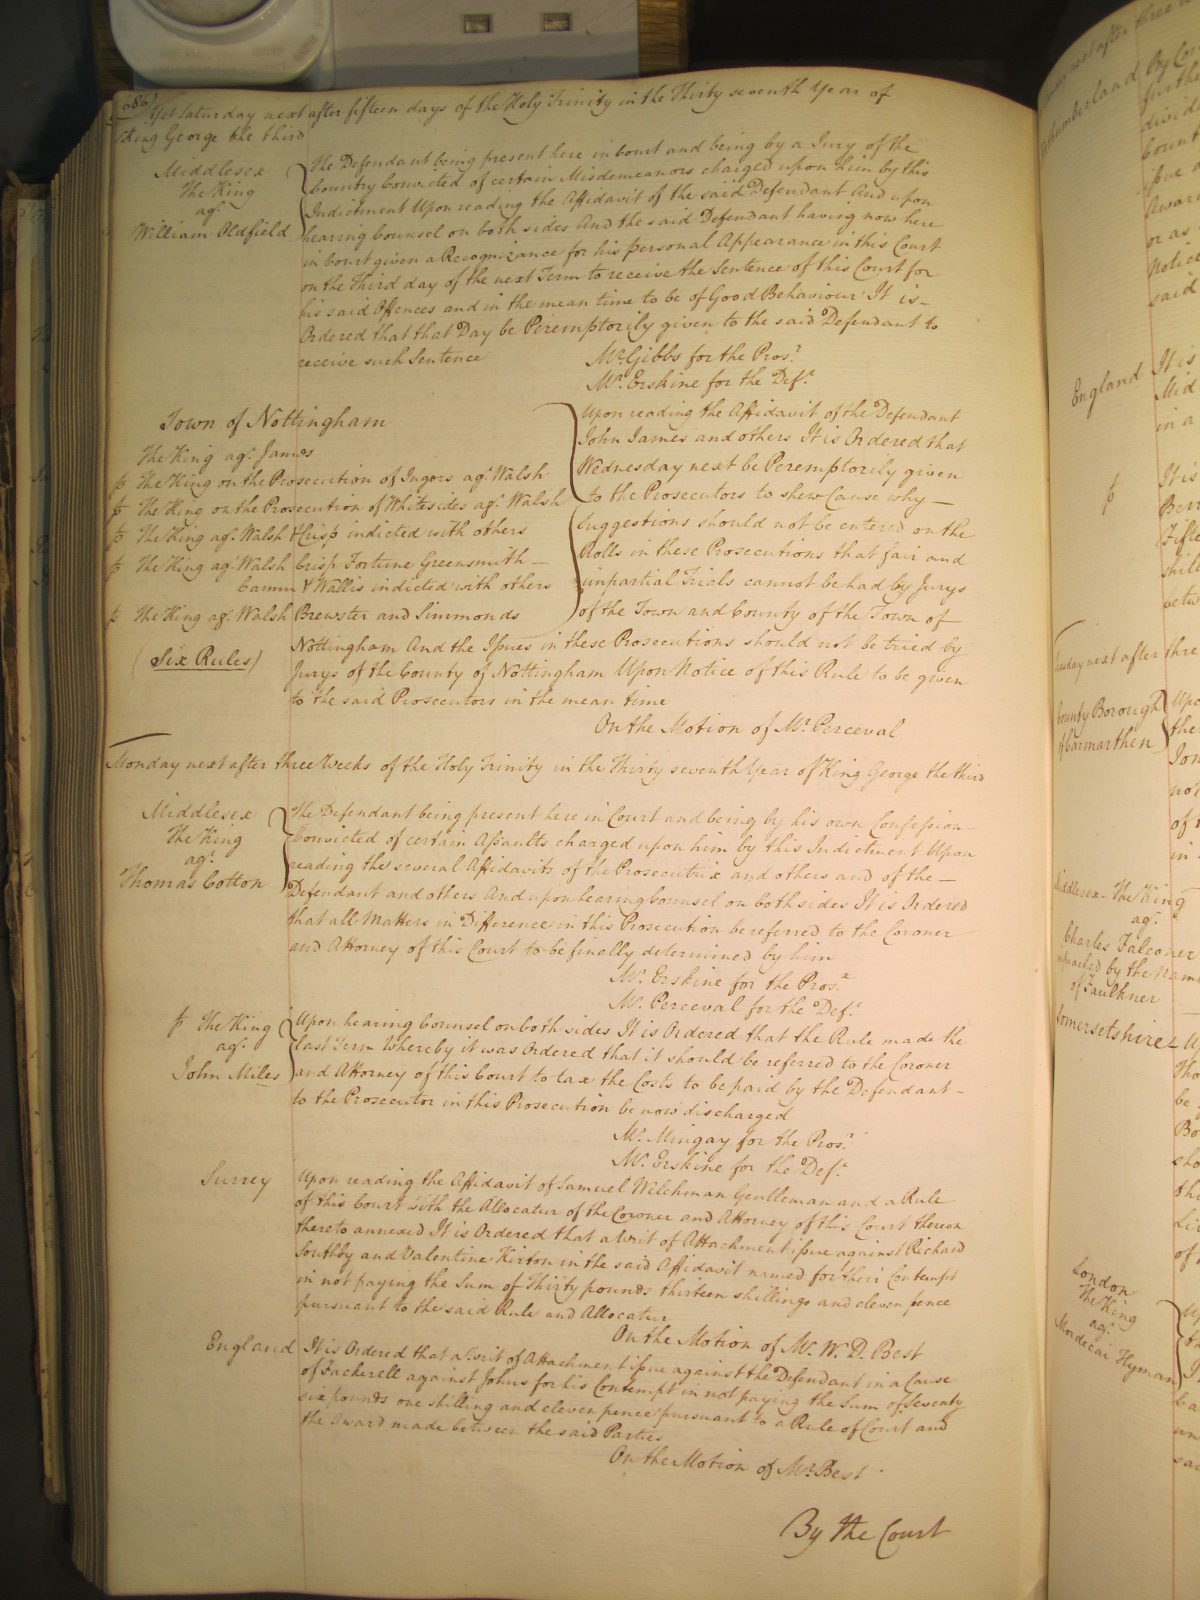 686
Yet Saturday next after fifteen days of the Holy Trinity in the Thirty seventh Year of
King George the third
Middlesex
The King
agt.
William Oldfield
The Defendant being present here in Court and being by a Jury of the
Country Convicted of certain Misdemeanors charged upon him by this
Indictment Upon reading the Affidavit of the said Defendant And upon
hearing Counsel on both sides And the said Defendant having now here
in Court given a Recognizance for his personal Appearance in this Court
on the Third day of the next Term to receive the Sentence of this Court for
his said Offences and in the mean time to be of Good Behaviour It is
Ordered that that Day be Peremptorily given to the said Defendant to
receive such Sentence
Mr. Gibbs for the Prosr.
Mr. Erskine for the Deft.
Town of Nottingham
The King agt. James
The King on the Prosecution of Ingers agt. Walsh
The King on the Prosecution of Whitesides agt. Walsh
The King agt. Walsh & Crisp indicted with others
The King agt. Walsh Crisp Fortune Greensmith
Camm & Wallis indicted with others
The King agt. Walsh Brewster and Simmonds
(Six Rules)
Upon reading the Affidavit of the Defendant
John James and others It is Ordered that
Wednesday next be Peremptorily given
to the Prosecutors to shew Cause why
Suggestions should not be entered on the
Rolls in these Prosecutions that fair and
impartial Trials cannot be had by Jurys
of the Town and County of the Town of
Nottingham And the Issues in these Prosecutions should not be tried by
Jurys of the County of Nottingham Upon Notice of this Rule to be given
to the said Prosecutors in the mean time
On the Motion of Mr. Perceval
Monday next after three Weeks of the Holy Trinity in the Thirty seventh Year of King George the third
Middlesex
The King
agt.
Thomas Cotton
The Defendant being present here in Court and being by his own Confession
Convicted of certain Assaults charged upon him by this Indictment Upon
reading the several Affidavits of the Prosecutrix and others and of the
Defendant and others And upon hearing Counsel on both sides It is Ordered
that all Matters in Difference in this Prosecution be referred to the Coroner
and Attorney of this Court to be finally determined by him
Mr. Erskine for the Prosx.
Mr. Perceval for the Deft.
The King
agt.
John Miles
Upon hearing Counsel on both sides It is Ordered that the Rule made the
last Term Whereby it was Ordered that it should be referred to the Coroner
and Attorney of this Court to tax the Costs to be paid by the Defendant
to the Prosecutor in this Prosecution be now discharged
Mr. Mingay for the Prosr.
Mr. Erskine for the Deft.
Surrey
Upon reading the Affidavit of Samuel Welchman Gentleman and a Rule
of this Court with the Allocatur of the Coroner and Attorney of this Court thereon
thereto annexed It is Ordered that a Writ of Attachment issue against Richard
Southby and Valentine Kirton in the said Affidavit named for their Contempt
in not paying the Sum of Thirty pounds thirteen shillings and eleven pence
pursuant to the said Rule and Allocatur
On the Motion of Mr. W. D. Best
England
It is Ordered that a Writ of Attachment issue against the Defendant in a Cause
of Fackerell against Johns for his Contempt in not paying the Sum of Seventy
six pounds one shilling and eleven pence pursuant to a Rule of Court and
the Award made between the said Parties
On the Motion of Mr. Best
By the Court
England
It is
in a
It is
County Borough
of Carmarthen
Middlesex The King
agt.
Charles Falconer
by the name
of Faulkner
Somersetshire
London
The King
agt.
Mordecai Hyman